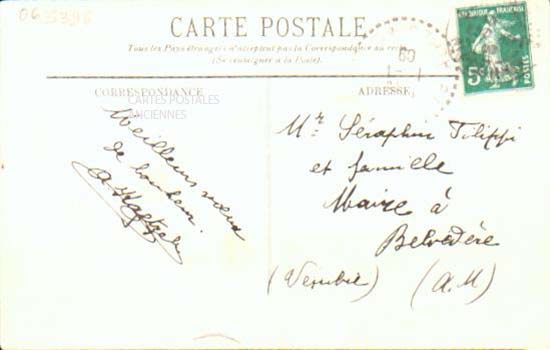 06
CARTE POSTALE
Tous les Pays étrangers n'acceptent pas la Correspondance au recto
(Se renseigner à la Poste).
CORRESPONDANCE
ADRESSE
CARTES POSTALES
ANCIENNES
Meilleurs vœux
de bonheur.
Mr Séraphin Filippi
et famille
Maire à
Belvédère
(Vésubie) (A.M)
09
5